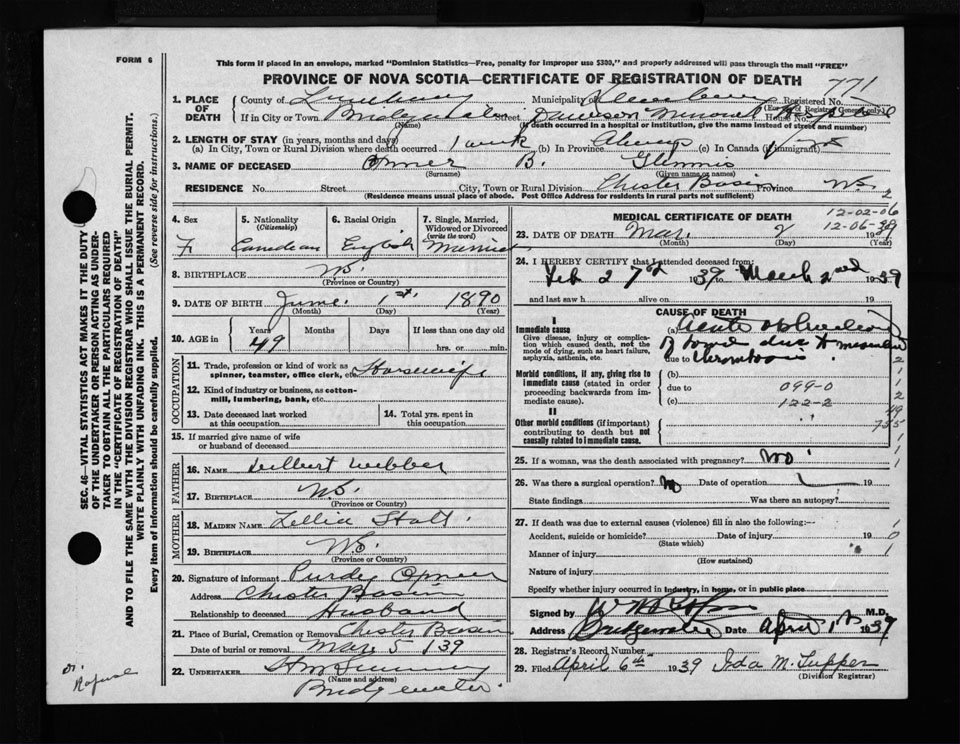 FORM 6
This form if placed in an envelope, marked "Dominion Statistics—Free, penalty for improper use $300," and properly addressed will pass through the mail "FREE"
PROVINCE OF NOVA SCOTIA—CERTIFICATE OF REGISTRATION OF DEATH
771
1. PLACE OF DEATH County of Lunenburg Municipality of Lunenburg Registered No.
(For use of Registrar General only)
If in City or Town Bridgewater Street Dawson Memorial House No.
(Name) (If death occurred in a hospital or institution, give the name instead of street and number)
2. LENGTH OF STAY (in years, months and days)
(a) In City, Town or Rural Division where death occurred 1 week (b) In Province Always (c) In Canada (if immigrant)
3. NAME OF DECEASED B.
(Surname) (Given name or names)
RESIDENCE No. Street City, Town or Rural Division Chester Basin Province N.S.
(Residence means usual place of abode. Post Office Address for residents in rural parts not sufficient)
2
4. Sex F
5. Nationality (Citizenship) Canadian
6. Racial Origin English
7. Single, Married, Widowed or Divorced (write the word) Married
8. BIRTHPLACE N.S.
(Province or Country)
9. DATE OF BIRTH June 1st. 1890
(Month) (Day) (Year)
10. AGE in Years Months Days If less than one day old
49 hrs. or min.
OCCUPATION
11. Trade, profession or kind of work as spinner, teamster, office clerk, etc. Housewife
12. Kind of industry or business, as cotton-mill, lumbering, bank, etc.
13. Date deceased last worked at this occupation
14. Total yrs. spent in this occupation
15. If married give name of wife or husband of deceased
FATHER
16. NAME Delbert Webber
17. BIRTHPLACE N.S.
(Province or Country)
MOTHER
18. MAIDEN NAME
19. BIRTHPLACE N.S.
(Province or Country)
20. Signature of informant Purdy
Address Chester Basin
Relationship to deceased Husband
21. Place of Burial, Cremation or Removal Chester Basin
Date of burial or removal Mar 5 1939
22. UNDERTAKER
(Name and address)
Bridgewater.
MEDICAL CERTIFICATE OF DEATH
12-02-06
12-06-38
23. DATE OF DEATH Mar. 2 39
(Month) (Day) (Year)
24. I HEREBY CERTIFY that I attended deceased from:
Feb 27th 1939 to March 2nd 1939
and last saw h alive on 19
CAUSE OF DEATH
I
Immediate cause
Give disease, injury or complication which caused death, not the mode of dying, such as heart failure, asphyxia, asthenia, etc.
(a) Acute obstruction
of bowel due to
due to thrombosis
Morbid conditions, if any, giving rise to immediate cause (stated in order proceeding backwards from immediate cause).
(b)
due to 099-0
(c) 122-2
II
Other morbid conditions (if important) contributing to death but not causally related to immediate cause.
25. If a woman, was the death associated with pregnancy? No
26. Was there a surgical operation? No Date of operation 19
State findings Was there an autopsy?
27. If death was due to external causes (violence) fill in also the following:—
Accident, suicide or homicide? Date of injury 19
(State which)
Manner of injury
(How sustained)
Nature of injury
Specify whether injury occurred in industry, in home, or in public place
Signed by M.D.
Address Bridgewater Date April 1st 1939
28. Registrar's Record Number
29. Filed April 6th 1939 Ida M. Tupper
(Division Registrar)
SEC. 46—VITAL STATISTICS ACT MAKES IT THE DUTY
OF THE UNDERTAKER OR PERSON ACTING AS UNDERTAKER TO OBTAIN ALL THE PARTICULARS REQUIRED
IN THE "CERTIFICATE OF REGISTRATION OF DEATH"
AND TO FILE THE SAME WITH THE DIVISION REGISTRAR WHO SHALL ISSUE THE BURIAL PERMIT.
WRITE PLAINLY WITH UNFADING INK. THIS IS A PERMANENT RECORD.
Every item of information should be carefully supplied. (See reverse side for instructions.)